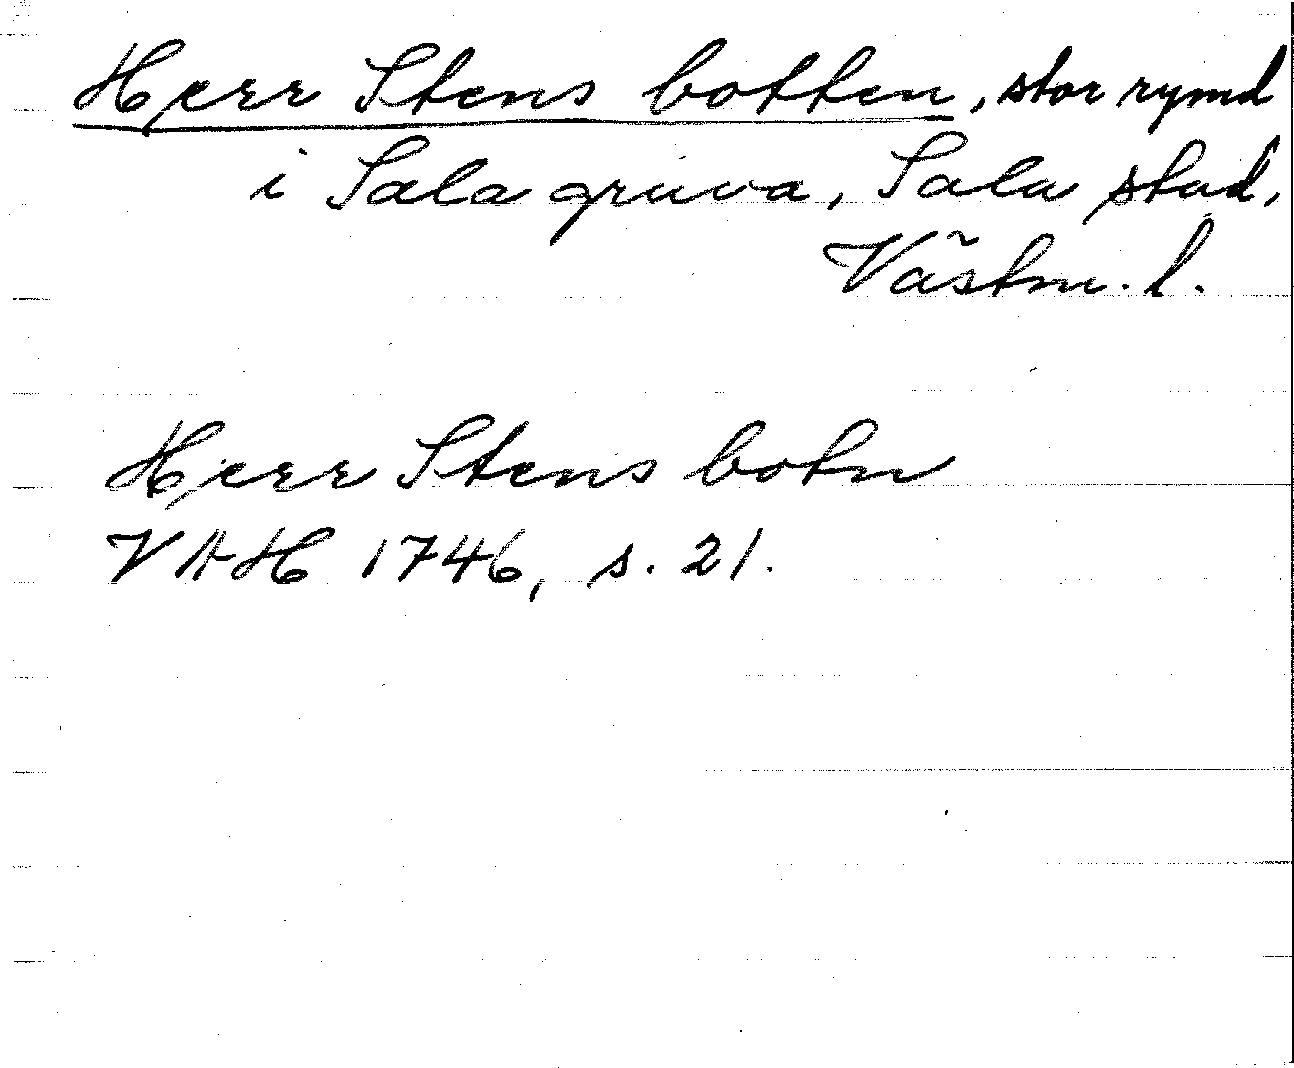 Herr Stens botten, stor rymd
i Sala gruva, Sala stad,
Västm. l.
Herr Stens botn
VAH 1746, s. 21.